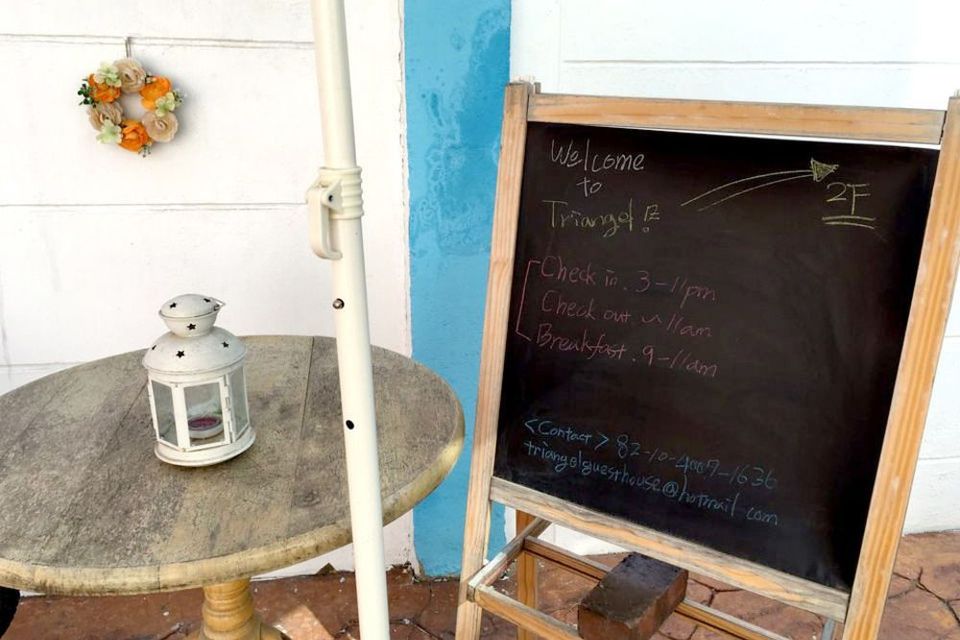 Welcome
to
Triangel!
2F
Check in. 3-11pm
Check out ~ 11am
Breakfast. 9-11am
<Contact> 82-10-4007-1636
triangelguesthouse@hotmail.com